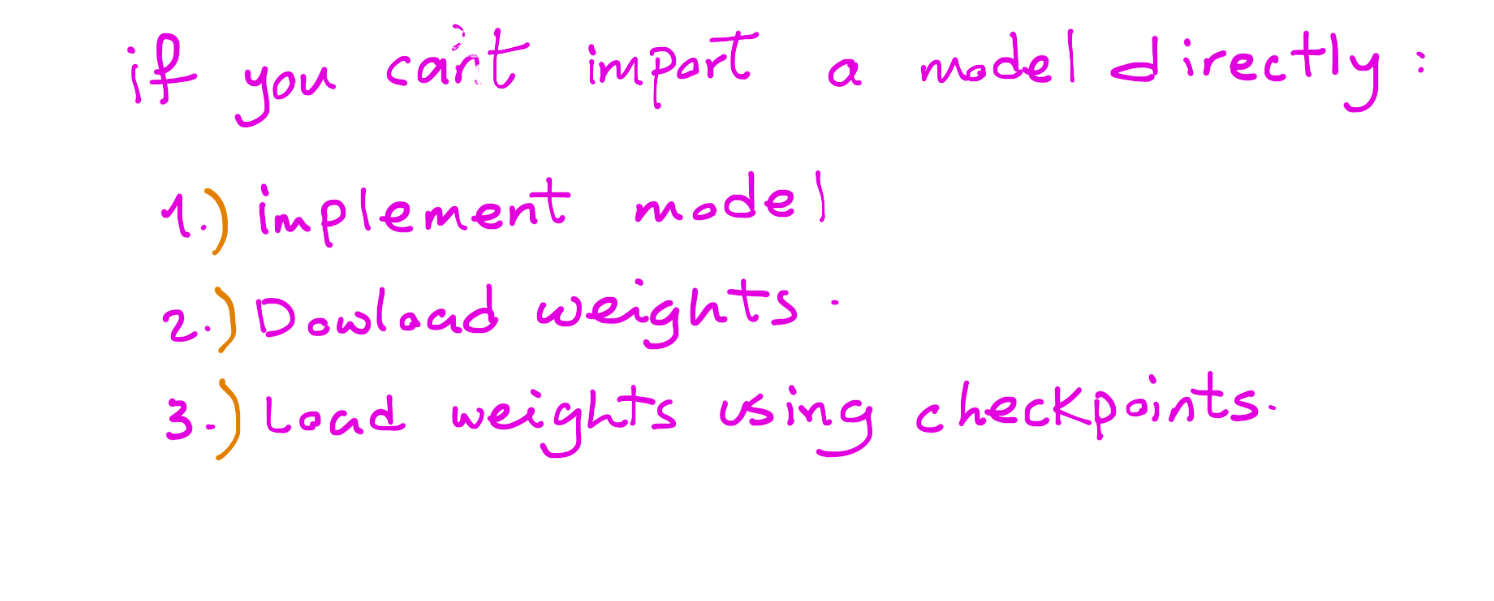 if you can't import a model directly:
1.) implement model
2.) Dowload weights.
3.) Load weights using checkpoints.